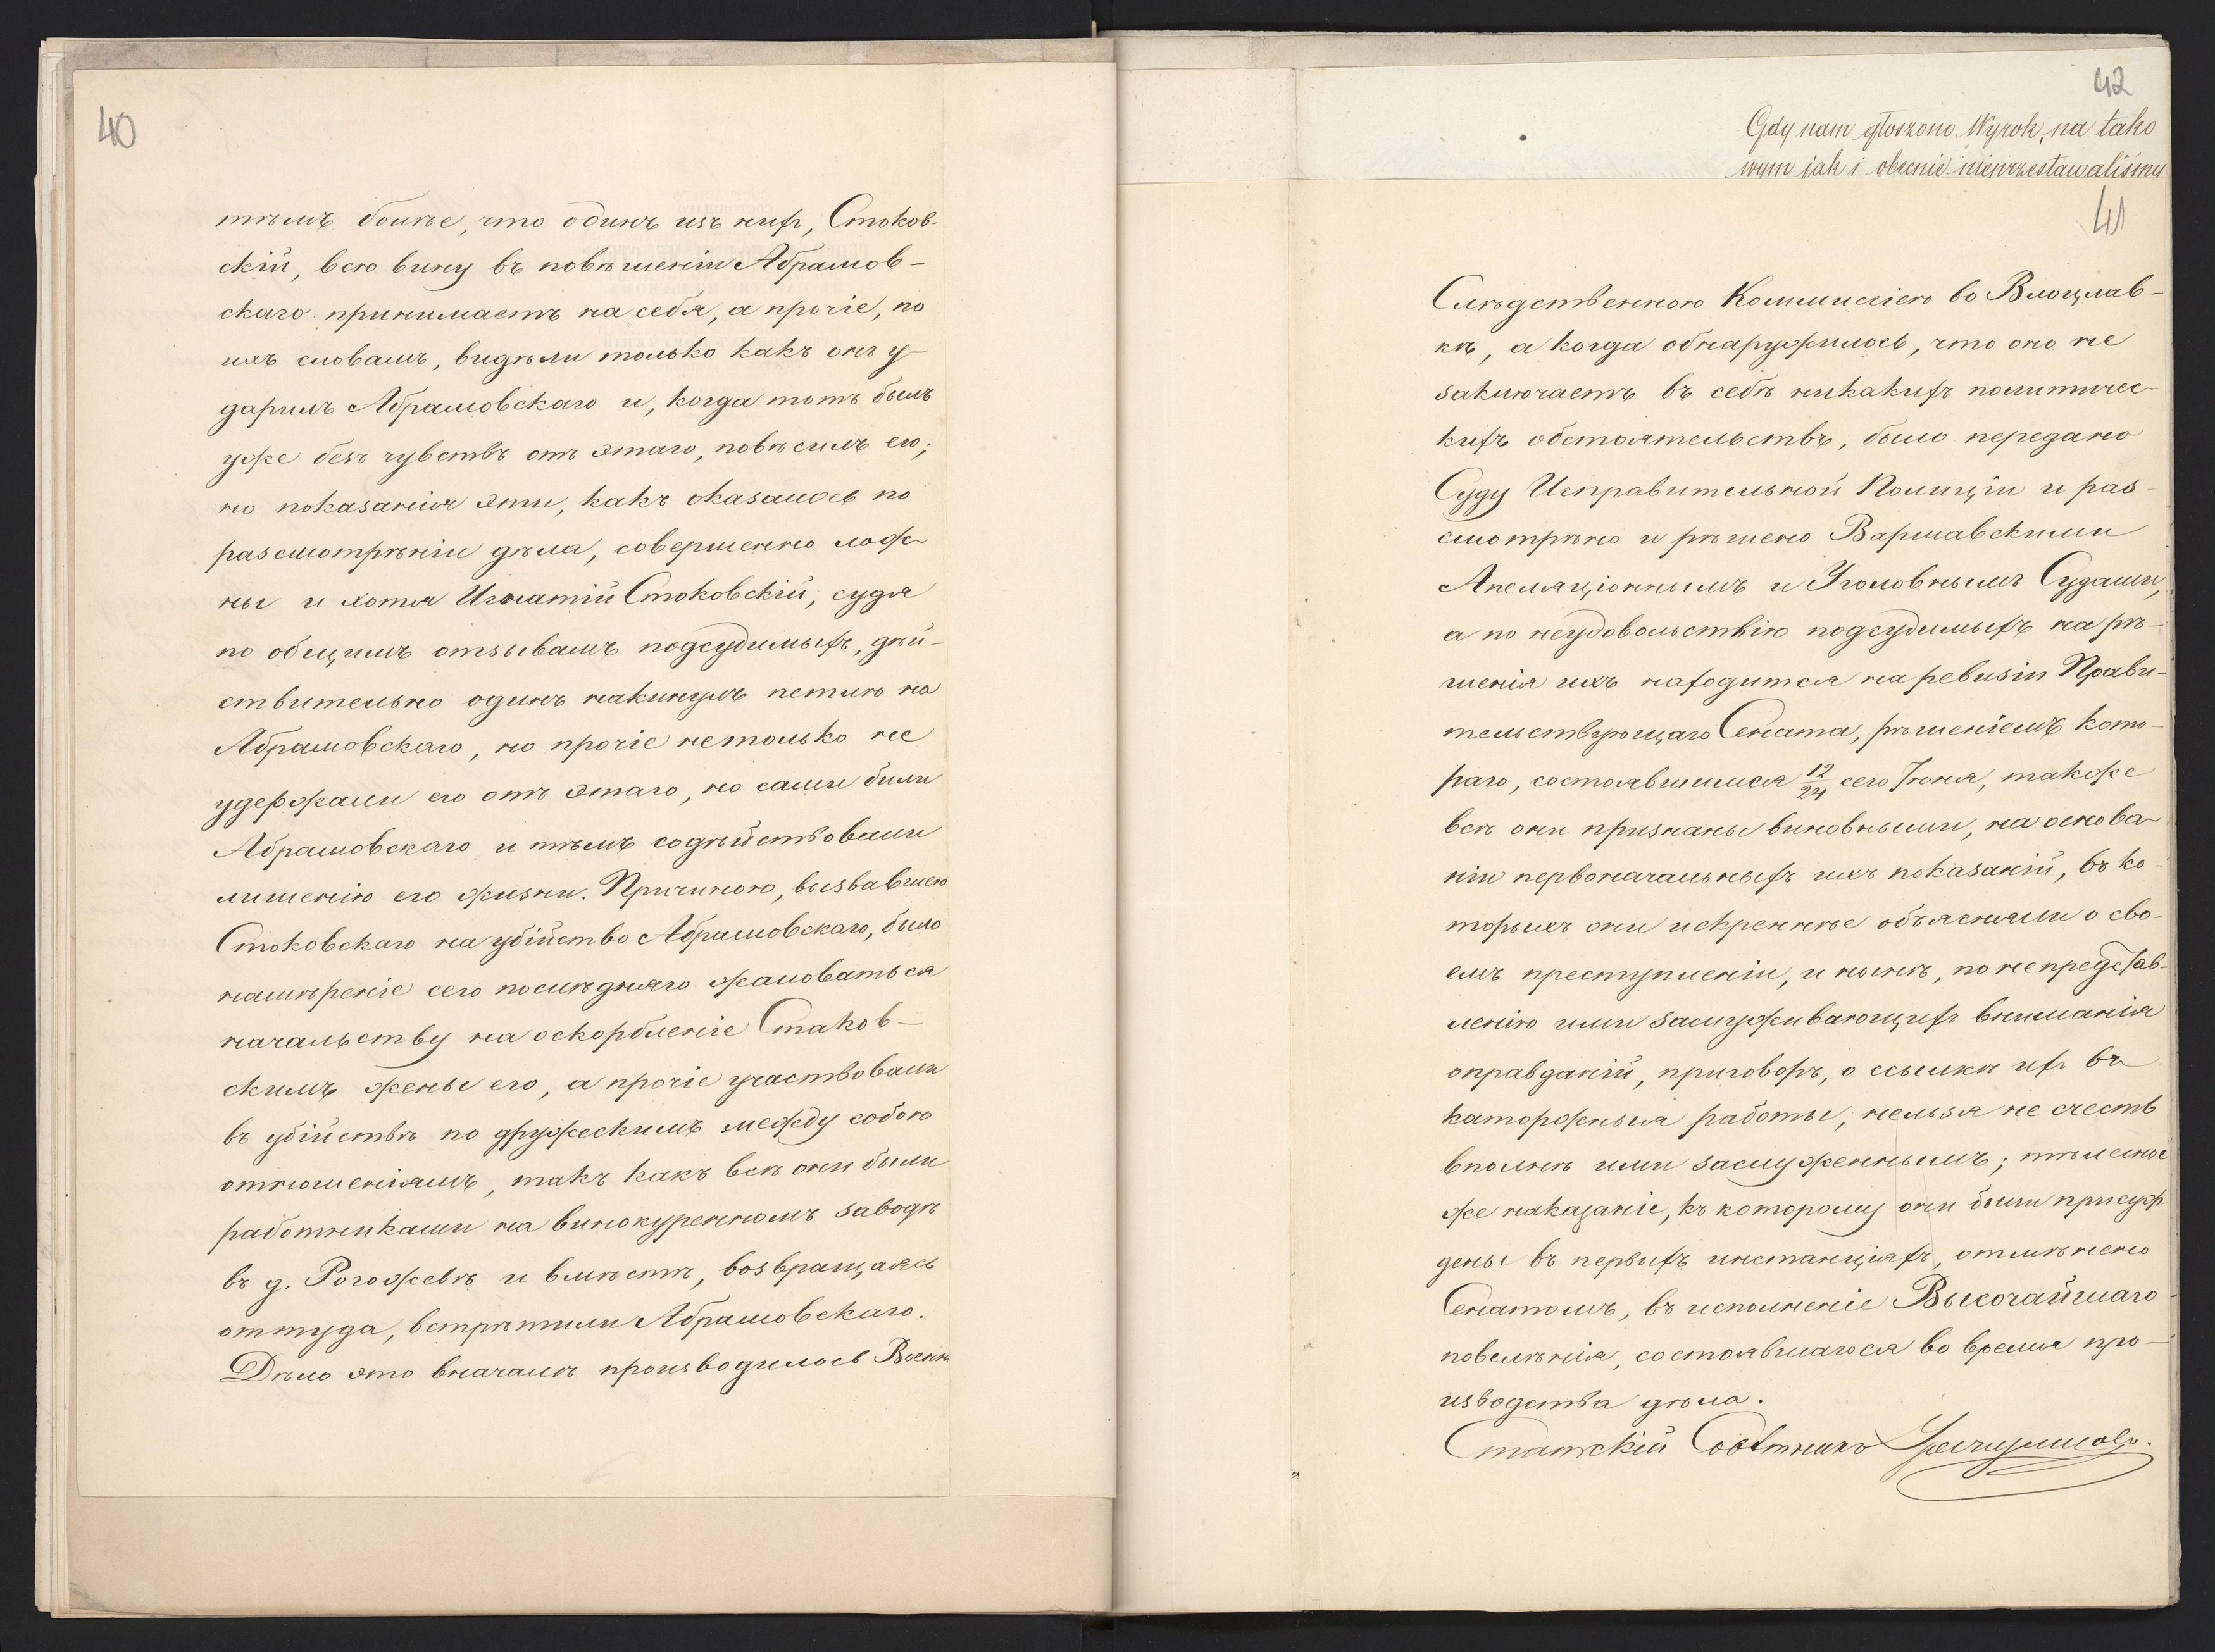 40
тѣмъ болѣе, что одинъ изъ нихъ, Стоков-
скій, всю вину въ повѣшеніи Абрамов-
скаго принимаетъ на себя, а прочіе, по
ихъ словамъ, видѣли только какъ онъ у-
дарилъ Абрамовскаго и, когда тотъ былъ
уже безъ чувствъ отъ этаго, повѣсилъ его;
но показанія эти, какъ оказалось по
разсмотрѣніи дѣла, совершенно лож-
ны и хотя Игнатій Стоковскій, судя
по общимъ отзывамъ подсудимыхъ, дѣй-
ствительно одинъ накинулъ петлю на
Абрамовскаго, но прочіе нетолько не
удержали его отъ этаго, но сами били
Абрамовскаго и тѣмъ содѣйствовали
лишенію его жизни. Причиною, вызвавшею
Стоковскаго на убійство Абрамовскаго, было
намѣреніе сего послѣдняго жаловаться
начальству на оскорбленіе Стаков-
скимъ жены его, а прочіе участвовали
въ убійствѣ по дружескимъ между собою
отношеніямъ, такъ какъ всѣ они были
работниками на винокуренномъ заводѣ
въ д. Рогожевѣ и вмѣстѣ, возвращаясь
оттуда, встрѣтили Абрамовскаго.
Дѣло это вначалѣ производилось Военно
42
Gdy nam głoszono Wyrok, na tako
wym jak i obecnie nieprzestawaliśmy
41
Слѣдственною Коммисіею во Влоцлав-
кѣ, а когда обнаружилось, что оно не
заключаетъ въ себѣ никакихъ политичес-
кихъ обстоятельствъ, было передано
Суду Исправительной Полиціи и раз-
смотрѣно и рѣшено Варшавскими
Апеляціоннымъ и Уголовнымъ Судами,
а по неудовольствію подсудимыхъ на рѣ-
шенія ихъ находится на ревизіи Прави-
тельствующаго Сената, рѣшеніемъ кото-
раго, состоявшимся 12/24 сего Іюня, также
всѣ они признаны виновными, на основа-
ніи первоначальныхъ ихъ показаній, въ ко-
торыхъ они искреннѣе объясняли о сво-
емъ преступленіи, и нынѣ, по непредстав-
ленію ими заслуживающихъ вниманія
оправданій, приговоръ, о ссылкѣ ихъ въ
каторжныя работы, нельзя не счесть
вполнѣ ими заслуженнымъ; тѣлесное
же наказаніе, къ которому они были присуж-
дены въ первыхъ инстанціяхъ, отмѣнено
Сенатомъ, въ исполненіе Высочайшаго
повелѣнія, состоявшагося во время про-
изводства дѣла.
Статскій Совѣтникъ